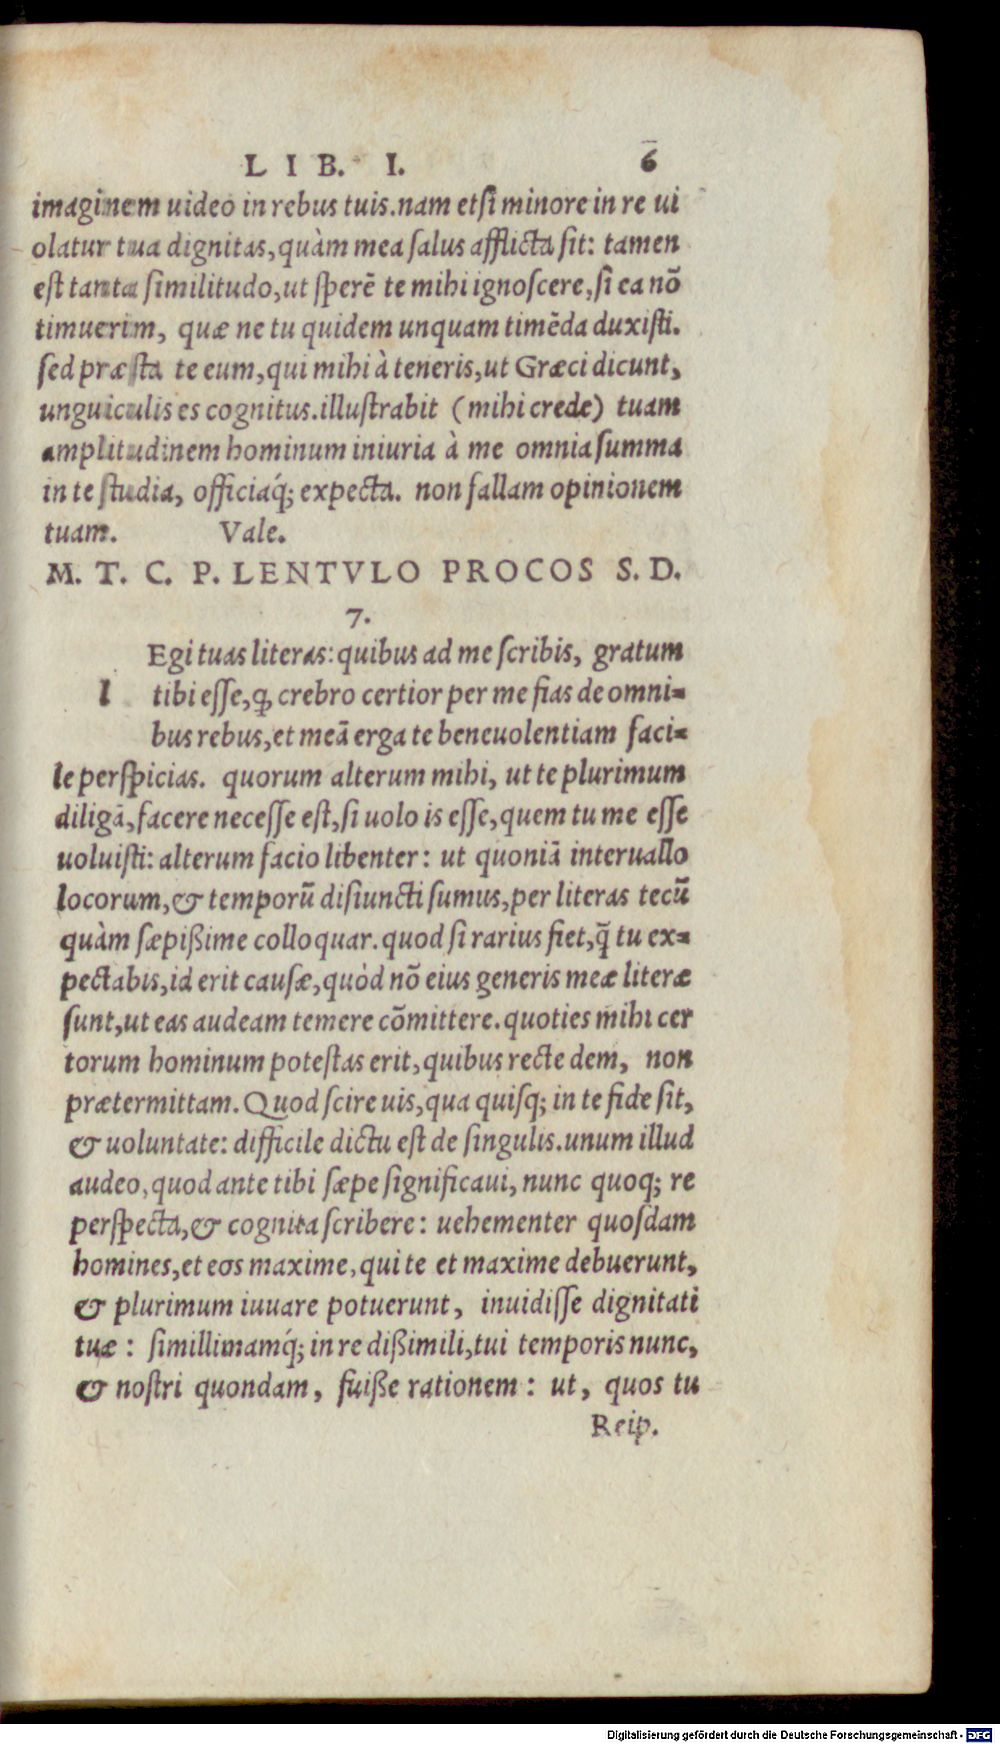 LIB. I. 6
imaginem uideo in rebus tuis. nam etſi minore in re ui
olatur tua dignitas, quàm mea ſalus afflicta ſit: tamen
eſt tanta ſimilitudo, ut ſperē te mihi ignoſcere, ſi ea nō
timuerim, quæ ne tu quidem unquam timēda duxiſti.
ſed præſta te eum, qui mihi à teneris, ut Græci dicunt,
unguiculis es cognitus. illuſtrabit (mihi crede) tuam
amplitudinem hominum iniuria à me omnia ſumma
in te ſtudia, officiaq́; expecta. non fallam opinionem
tuam. Vale.
M. T. C. P. LENTVLO PROCOS S. D.
7.
Egi tuas literas: quibus ad me ſcribis, gratum
l tibi eſſe, ꝙ crebro certior per me fias de omni=
bus rebus, et meā erga te beneuolentiam faci=
le perſpicias. quorum alterum mihi, ut te plurimum
diligā, facere neceſſe eſt, ſi uolo is eſſe, quem tu me eſſe
uoluiſti: alterum facio libenter: ut quoniā interuallo
locorum, & temporū diſiuncti ſumus, per literas tecū
quàm ſæpißime colloquar. quod ſi rarius fiet, q̄ tu ex=
pectabis, id erit cauſæ, quòd nō eius generis meæ literæ
ſunt, ut eas audeam temere cōmittere. quoties mihi cer
torum hominum poteſtas erit, quibus recte dem, non
prætermittam. Quod ſcire uis, qua quiſq; in te fide ſit,
& uoluntate: difficile dictu eſt de ſingulis. unum illud
audeo, quod ante tibi ſæpe ſignificaui, nunc quoq; re
perſpecta, & cognita ſcribere: uehementer quoſdam
homines, et eos maxime, qui te et maxime debuerunt,
& plurimum iuuare potuerunt, inuidiſſe dignitati
tuæ: ſimillimamq́; in re dißimili, tui temporis nunc,
& noſtri quondam, fuiße rationem: ut, quos tu
Reip.
Digitalisierung gefördert durch die Deutsche Forschungsgemeinschaft - DFG